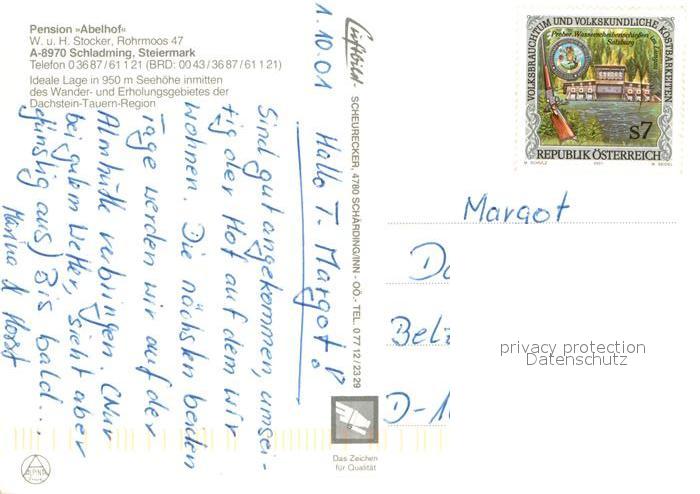 Pension »Abelhof«
W. u. H. Stocker, Rohrmoos 47
A-8970 Schladming, Steiermark
Telefon 0 36 87 / 61 1 21 (BRD: 00 43 / 36 87 / 61 1 21)
Ideale Lage in 950 m Seehöhe inmitten
des Wander- und Erholungsgebietes der
Dachstein-Tauern-Region
1.10.01
Hallo T. Margot!
Sind gut angekommen, umsei-
tig der Hof auf dem wir
wohnen. Die nächsten beiden
Tage werden wir auf der
Almhütte verbringen. (Nur
bei gutem Wetter, sieht aber
günstig aus) Bis bald...
Marina & Horst
Luftbild - SCHEURECKER, 4780 SCHÄRDING/INN - OÖ. - TEL. 0 77 12 / 23 29
Das Zeichen
für Qualität
ALPINA
VOLKSBRAUCHTUM UND VOLKSKUNDLICHE KOSTBARKEITEN
Preber Wasserscheibenschießen im Lungau
Salzburg
S7
REPUBLIK ÖSTERREICH
M. SCHULZ 2001 W. SEIDEL
Margot
D-1
privacy protection
Datenschutz